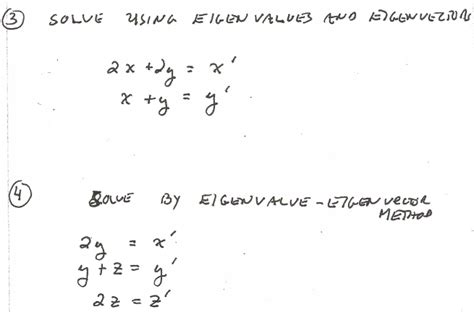 ③ SOLVE USING EIGENVALUES AND EIGENVECTOR
2x + 2y = x'
x + y = y'
④ SOLVE BY EIGENVALUE - EIGENVECTOR
METHOD
2y = x'
y + z = y'
2z = z'